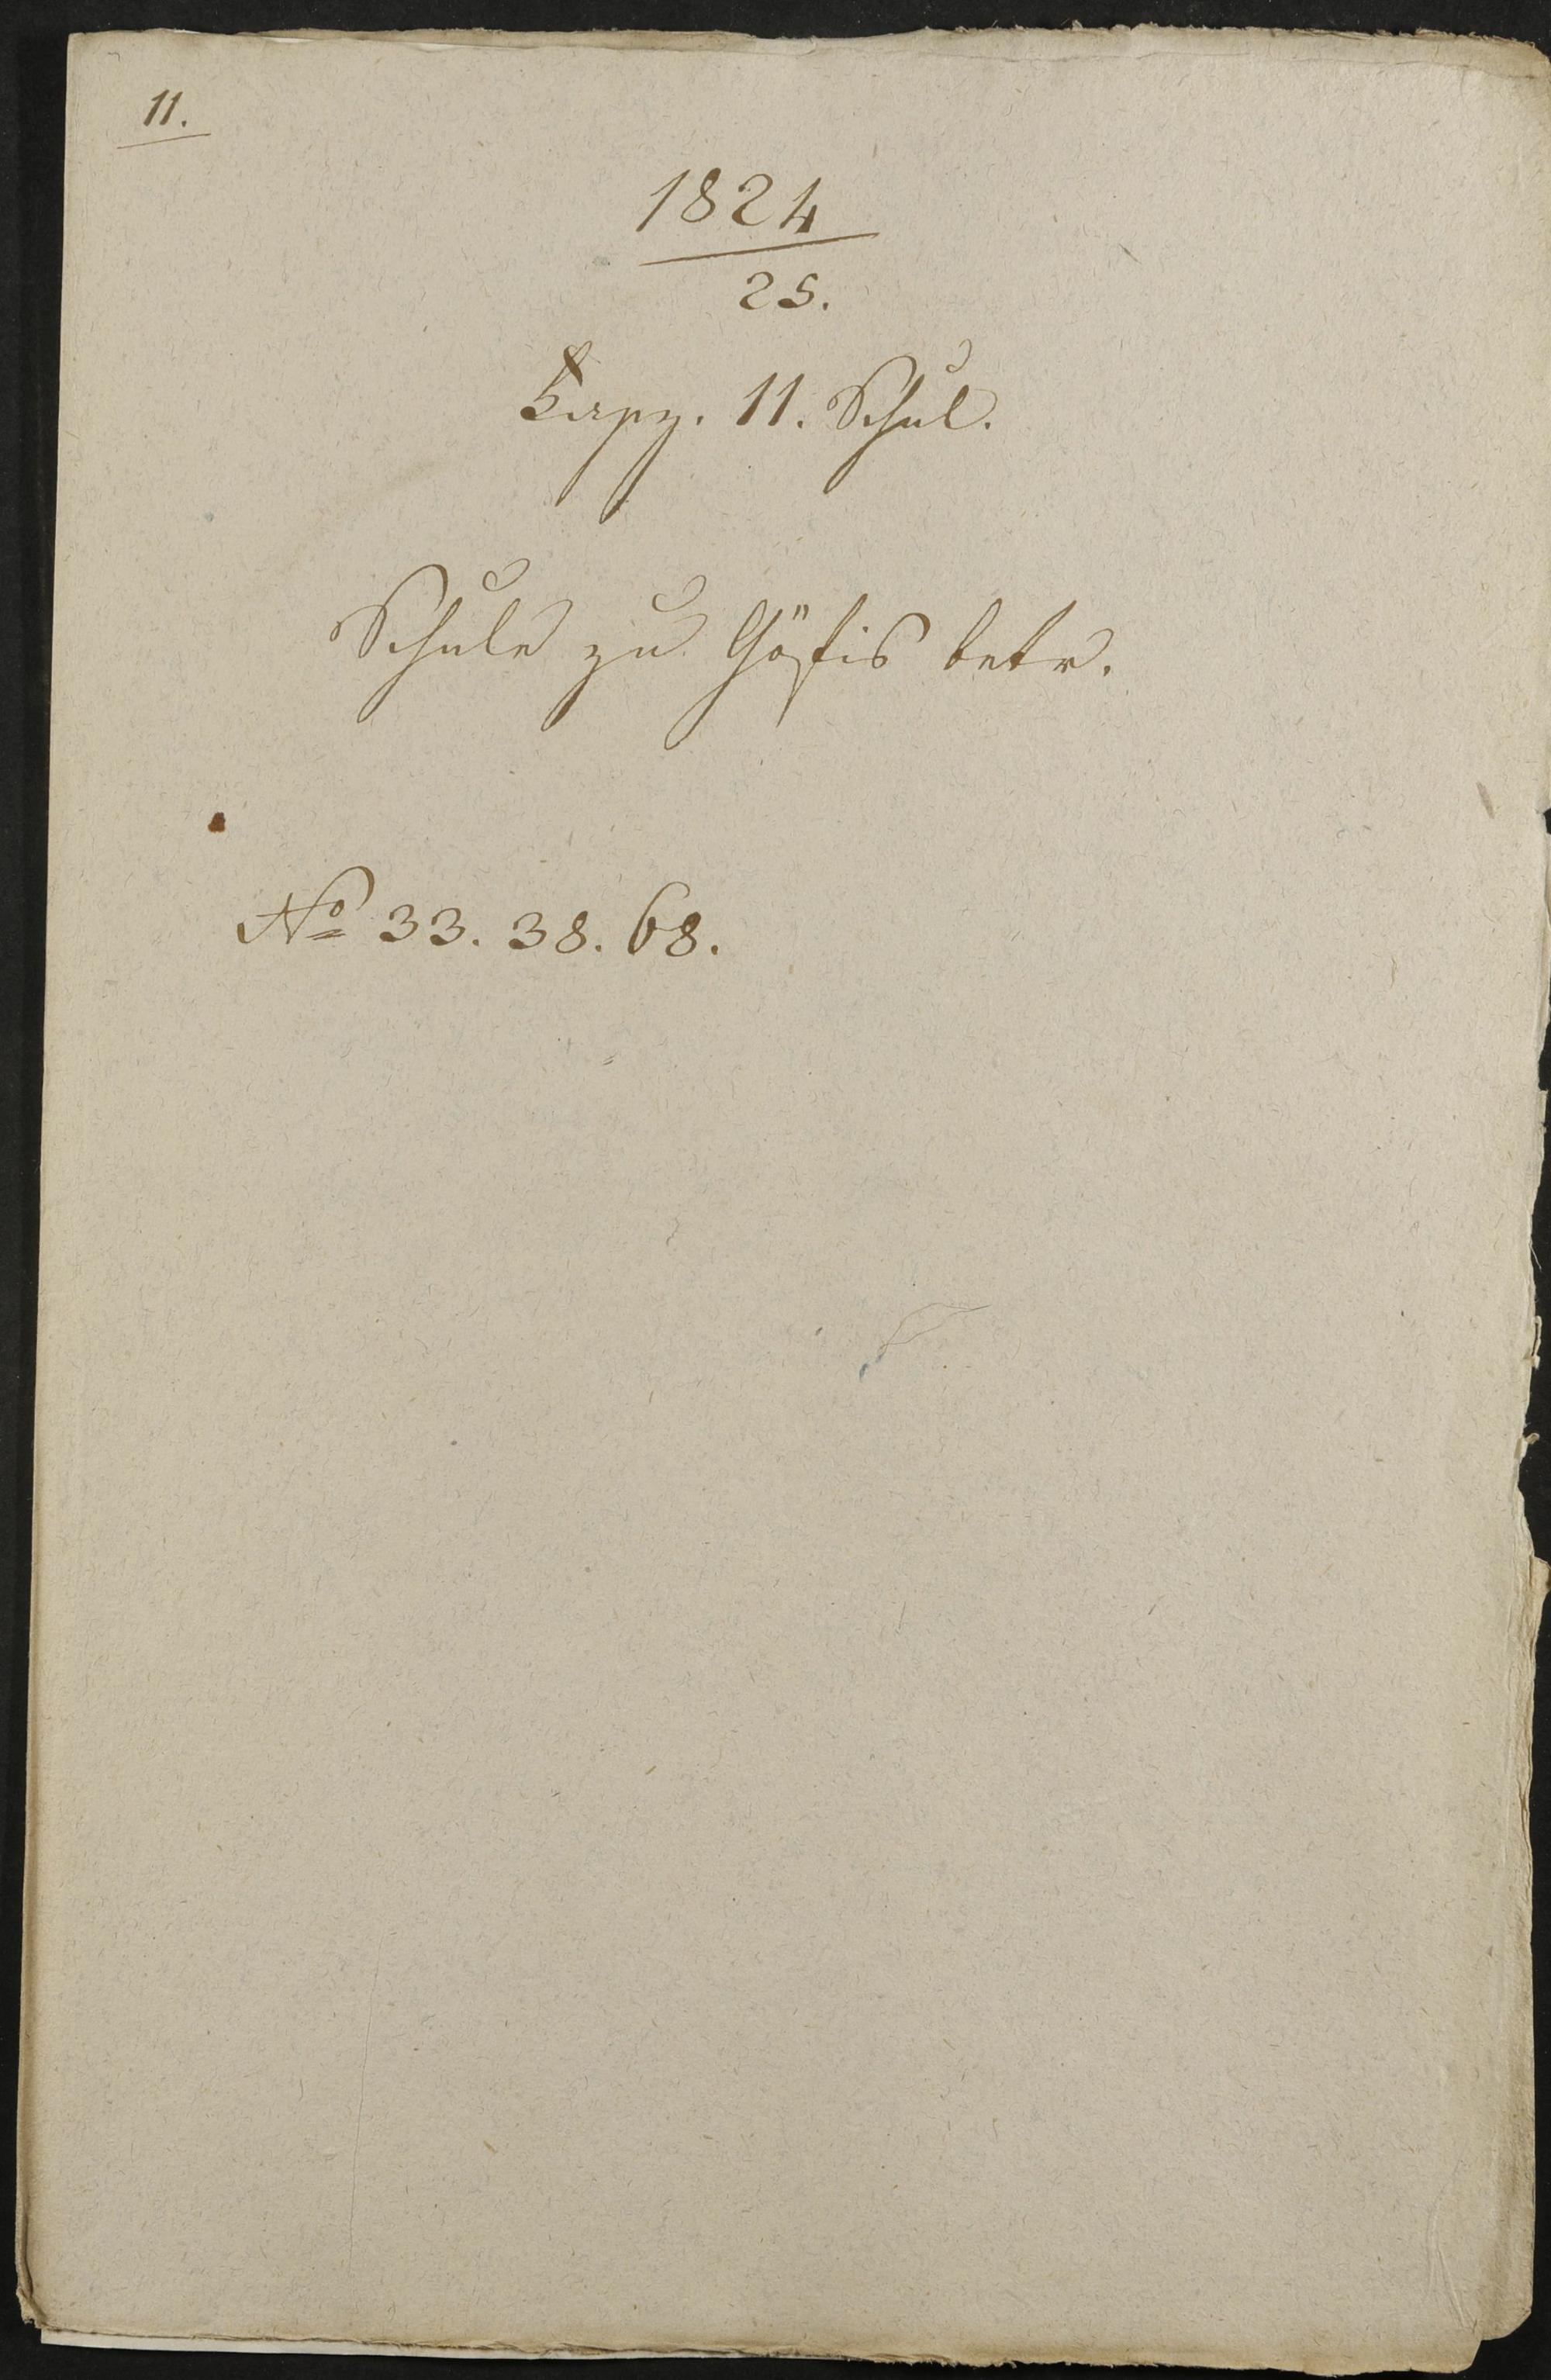 11.
1824
25.
Fasz. 11. Schul.
Schule zu Göfis betr.
No 33. 38. 68.